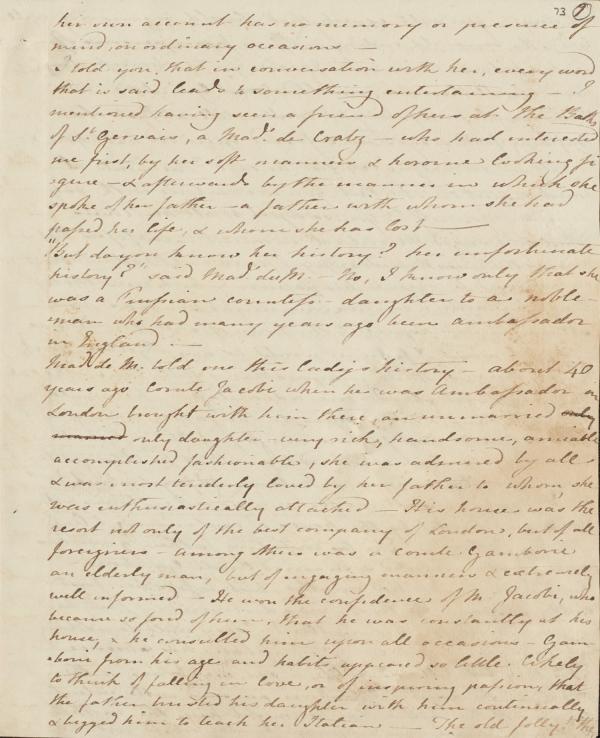 73 ①
her own account has no memory or presence of
mind, on ordinary occasions —
I told you that in conversation with her, every word
that is said leads to something entertaining — I
mentioned having seen a friend of hers at the Baths
of St. Gervais, a Mad. de Crabz — who had interested
me first, by her soft manners & forlorne looking fi
gure — & afterwards by the manner in which she
spoke of her father — a father with whom she had
passed her life, & whom she has lost —
"But do you know her history? her unfortunate
history?" said Mad. de M. — No, I know only that she
was a Prussian countess — daughter to a noble-
man who had many years ago been ambassador
in England. —
Mad. de M. told me this Lady's history — about 40
years ago Comte Jacobi when he was Ambassador in
London brought with him there, an unmarried only
only daughter — very rich, handsome, amiable
accomplished fashionable, she was admired by all
& was most tenderly loved by her father to whom she
was enthusiastically attached — His house was the
resort not only of the best company of London, but of all
foreigners — among others was a Comte Gamborie
an elderly man, but of engaging manners & extremely
well informed — He won the confidence of M. Jacobi, who
became so fond of him, that he was constantly at his
house, & he consulted him upon all occasions — Gam
borie from his age and habits, appeared so little likely
to think of falling in love, or of inspiring passion, that
the father trusted his daughter with him continually
& begged him to teach her Italian — The old folly! the